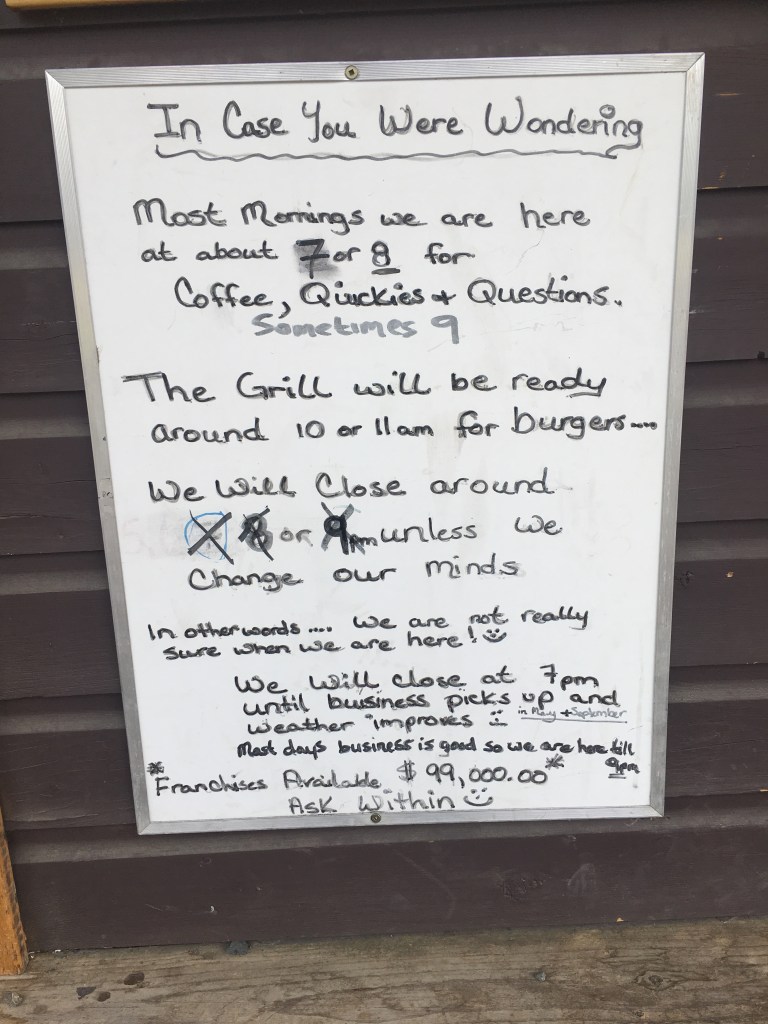 In Case You Were Wondering
Most Mornings we are here
at about 7 or 8 for
Coffee, Quickies + Questions.
Sometimes 9
The Grill will be ready
around 10 or 11am for burgers....
We Will Close around
8 or 9pm unless we
Change our minds
In other words .... We are not really
sure when we are here! ☺
We will close at 7pm
until business picks up and
weather improves ☺ in May + September
Most days business is good so we are here till
9pm
*Franchises Available $99,000.00*
Ask Within ☺